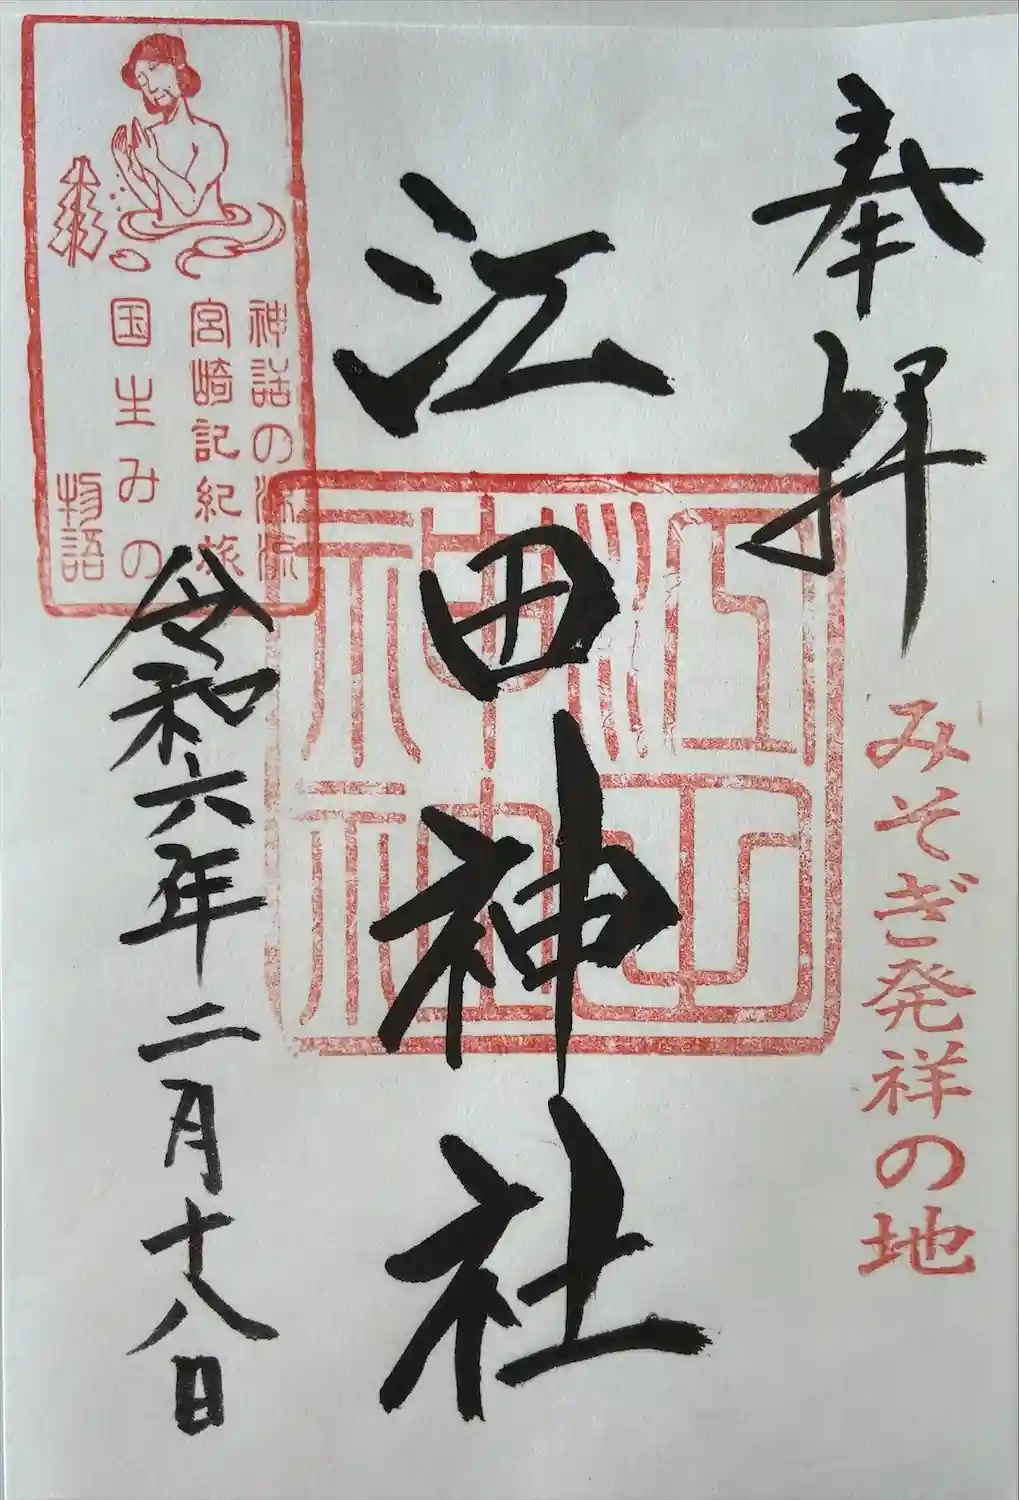 奉拝
みそぎ発祥の地
江田神社
江田神社
神話の源流
宮崎記紀旅
国生みの
物語
令和六年二月十八日